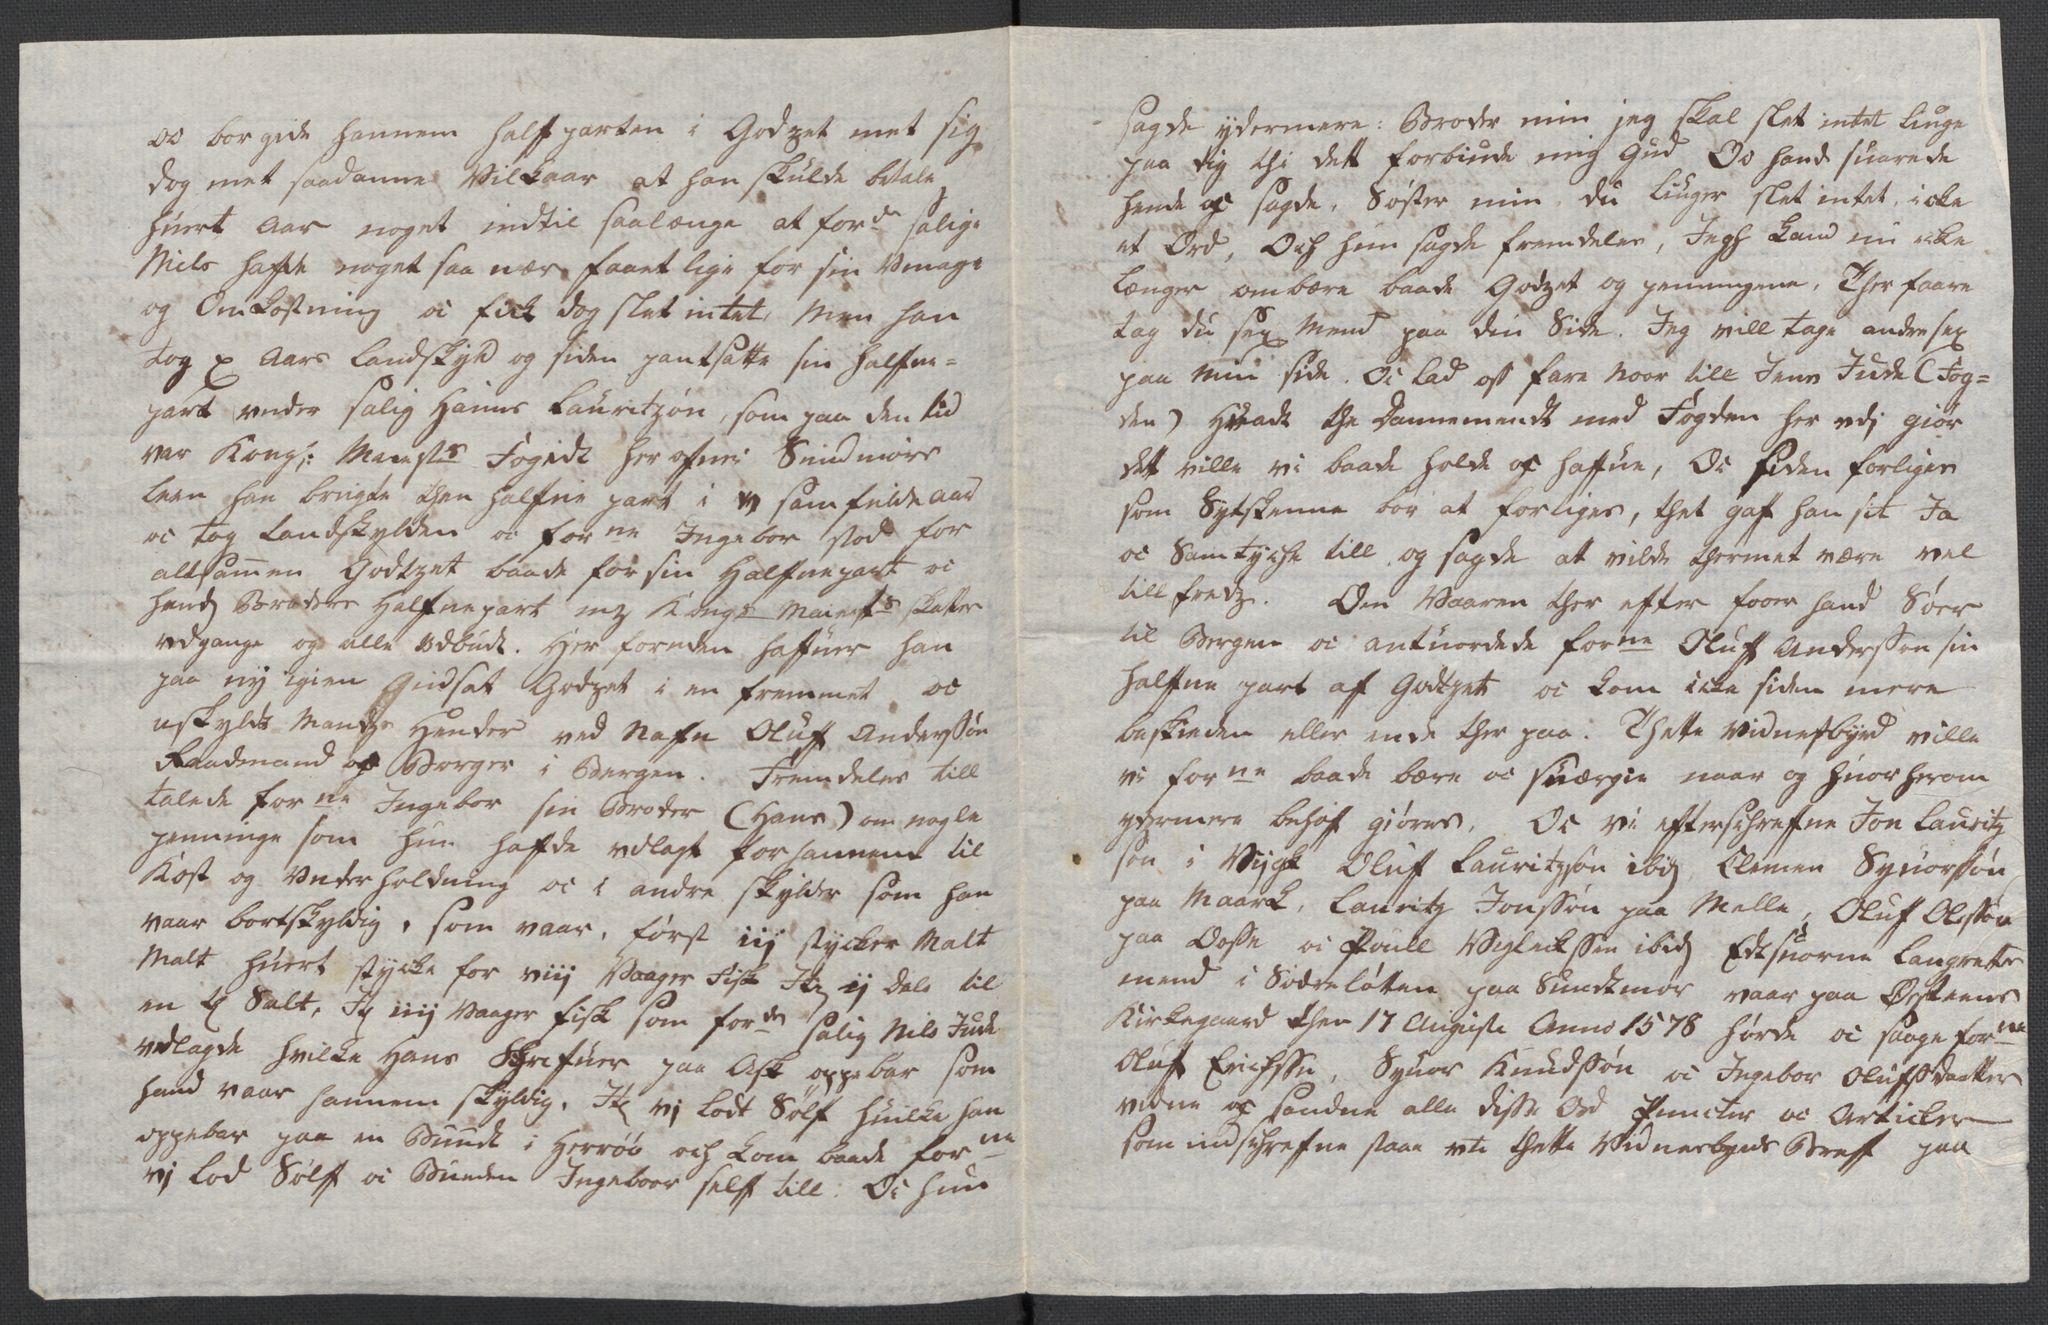 oc borgede hannem halfparten i Godzet met sig
dog met saadanne Vilkaar at han skulde betale
huert Aar noget indtil saalænge at forde salige
Niels hafde noget saa nær faaet lige for sin Vmage
og Omkostning oc fick dog slet intet, Men han
tog x Aars Landskyld og siden pantsatte sin halfue-
part vnder salig Hanns Lauritzøn, som paa den tid
var Kong: Maiests Fogidt her ofuer Sundmøre
leen han brugte then halfue part i v samfelde aar
oc tog Landskylden oc forne Ingebor stod for
altsamen Godtzet baade for sin Halfuepart oc
hendz Broders Halfuepart mz Kongs Maiests skatter
vdgange og alle vdbudt. Her foruden haffuer han
paa ny igien indsat Godzet i en fremmet oc
uskyldt Mandz Hender ved Nafn Oluff Anderssøn
Raadmand og Borger i Bergen. Fremdeles till
talede forne Ingebor sin Broder (Hans) om nogle
penninge som hun hafde vdlagt for hannem til
Kost og Vnderholdning oc i andre skylder som han
vaar bortskyldig, som vaar, først iij stycker Malt
Malt huert stycke for viij Vaager Fisk Itz ij Dale til
en Salt, Itz iiij Vaager fisk som forde salig Nils Jude
vdlagde hvilke Hans Schrefuer paa Ask oppebar som
hand vaar hannem skyldig. Itz vj Lodt Sølf huilke han
oppebar paa en Bunde i Herrøe och kom baade forne
vj Lod Sølff oc Bunden Ingeboor self till. Oc hun
sagde ydermere: Broder min jeg skal slet intet liuge
paa dig thi dett forbiude mig Gud Oc hand suarede
hende og sagde, Søster min, du liuger slet intet, icke
et Ord, Och hun sagde fremdeles, Jegh kand nu icke
længer ombære baade Godzet og penningene, Therfaare
tag du sex Mend paa din Side. Jeg vill tage andre sex
paa min side. Oc lad oss fare Noor till Jens Jude (Fog-
den) Huadt the Dannemendt med Fogden her vdj giør
dett ville vi baade holde og haffue, Oc siden forliges
som Sytskenne bør at forliges, thet gaf han sit Ja
oc Samtyche till og sagde att vilde thermet være vel
till fredz. Om Vaaren ther efter foor hand Søer
til Bergen oc antuordede forne Oluff Anderssøn sin
halfue part af Godtzet oc kom icke siden mere
beskeden eller ende ther paa. Thette Vidnesbyrd ville
vi forne baade bære oc suærgie naar og huor herom
ydermere behof giøres, Oc vi efterschrefne Jon Lauritz
søn i Vijgk Oluff Lauritzsøn ibidz Clemen Syuorssøn
paa Maark, Lauritz Jonssøn paa Melle, Oluf Olssøn
paa Dosse oc Poull Vigleckssøn ibidz Edtsuorne Laugrettes
mend i Sødreløtten paa Sundtmør vaar paa Ørsteens
Kirkegaard then 17 Auguste Anno 1578 hørde oc saage forne
Oluff Erichssøn, Syuor Knudssøn oc Ingebor Olufsdaatter
vidne og sandne alle disse Ord Puncter oc Articler
som indschrefne staae vti thette Vidnesbyrds Breff paa